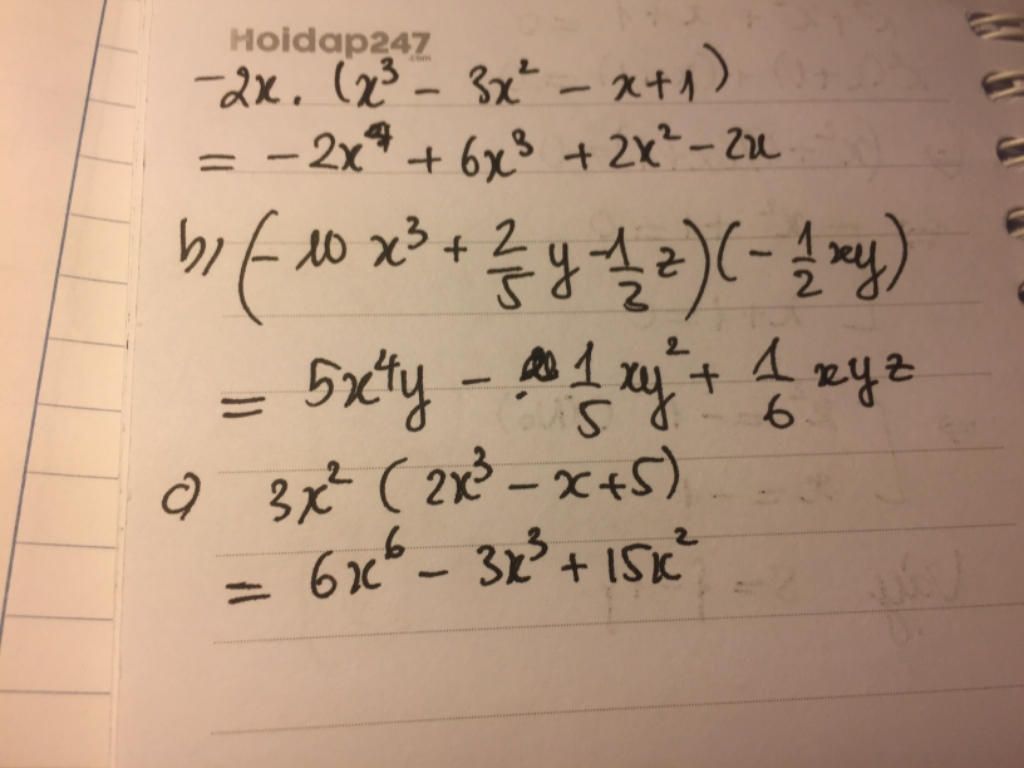 Hoidap247
.com
-2x. (x³ - 3x² - x+1)
= -2x⁴ + 6x³ + 2x² - 2x
b) (-10x³ + 2/5 y - 1/3 z)(- 1/2 xy)
= 5x⁴y - 1/5 xy² + 1/6 xyz
c) 3x² (2x³ - x+5)
= 6x⁶ - 3x³ + 15x²